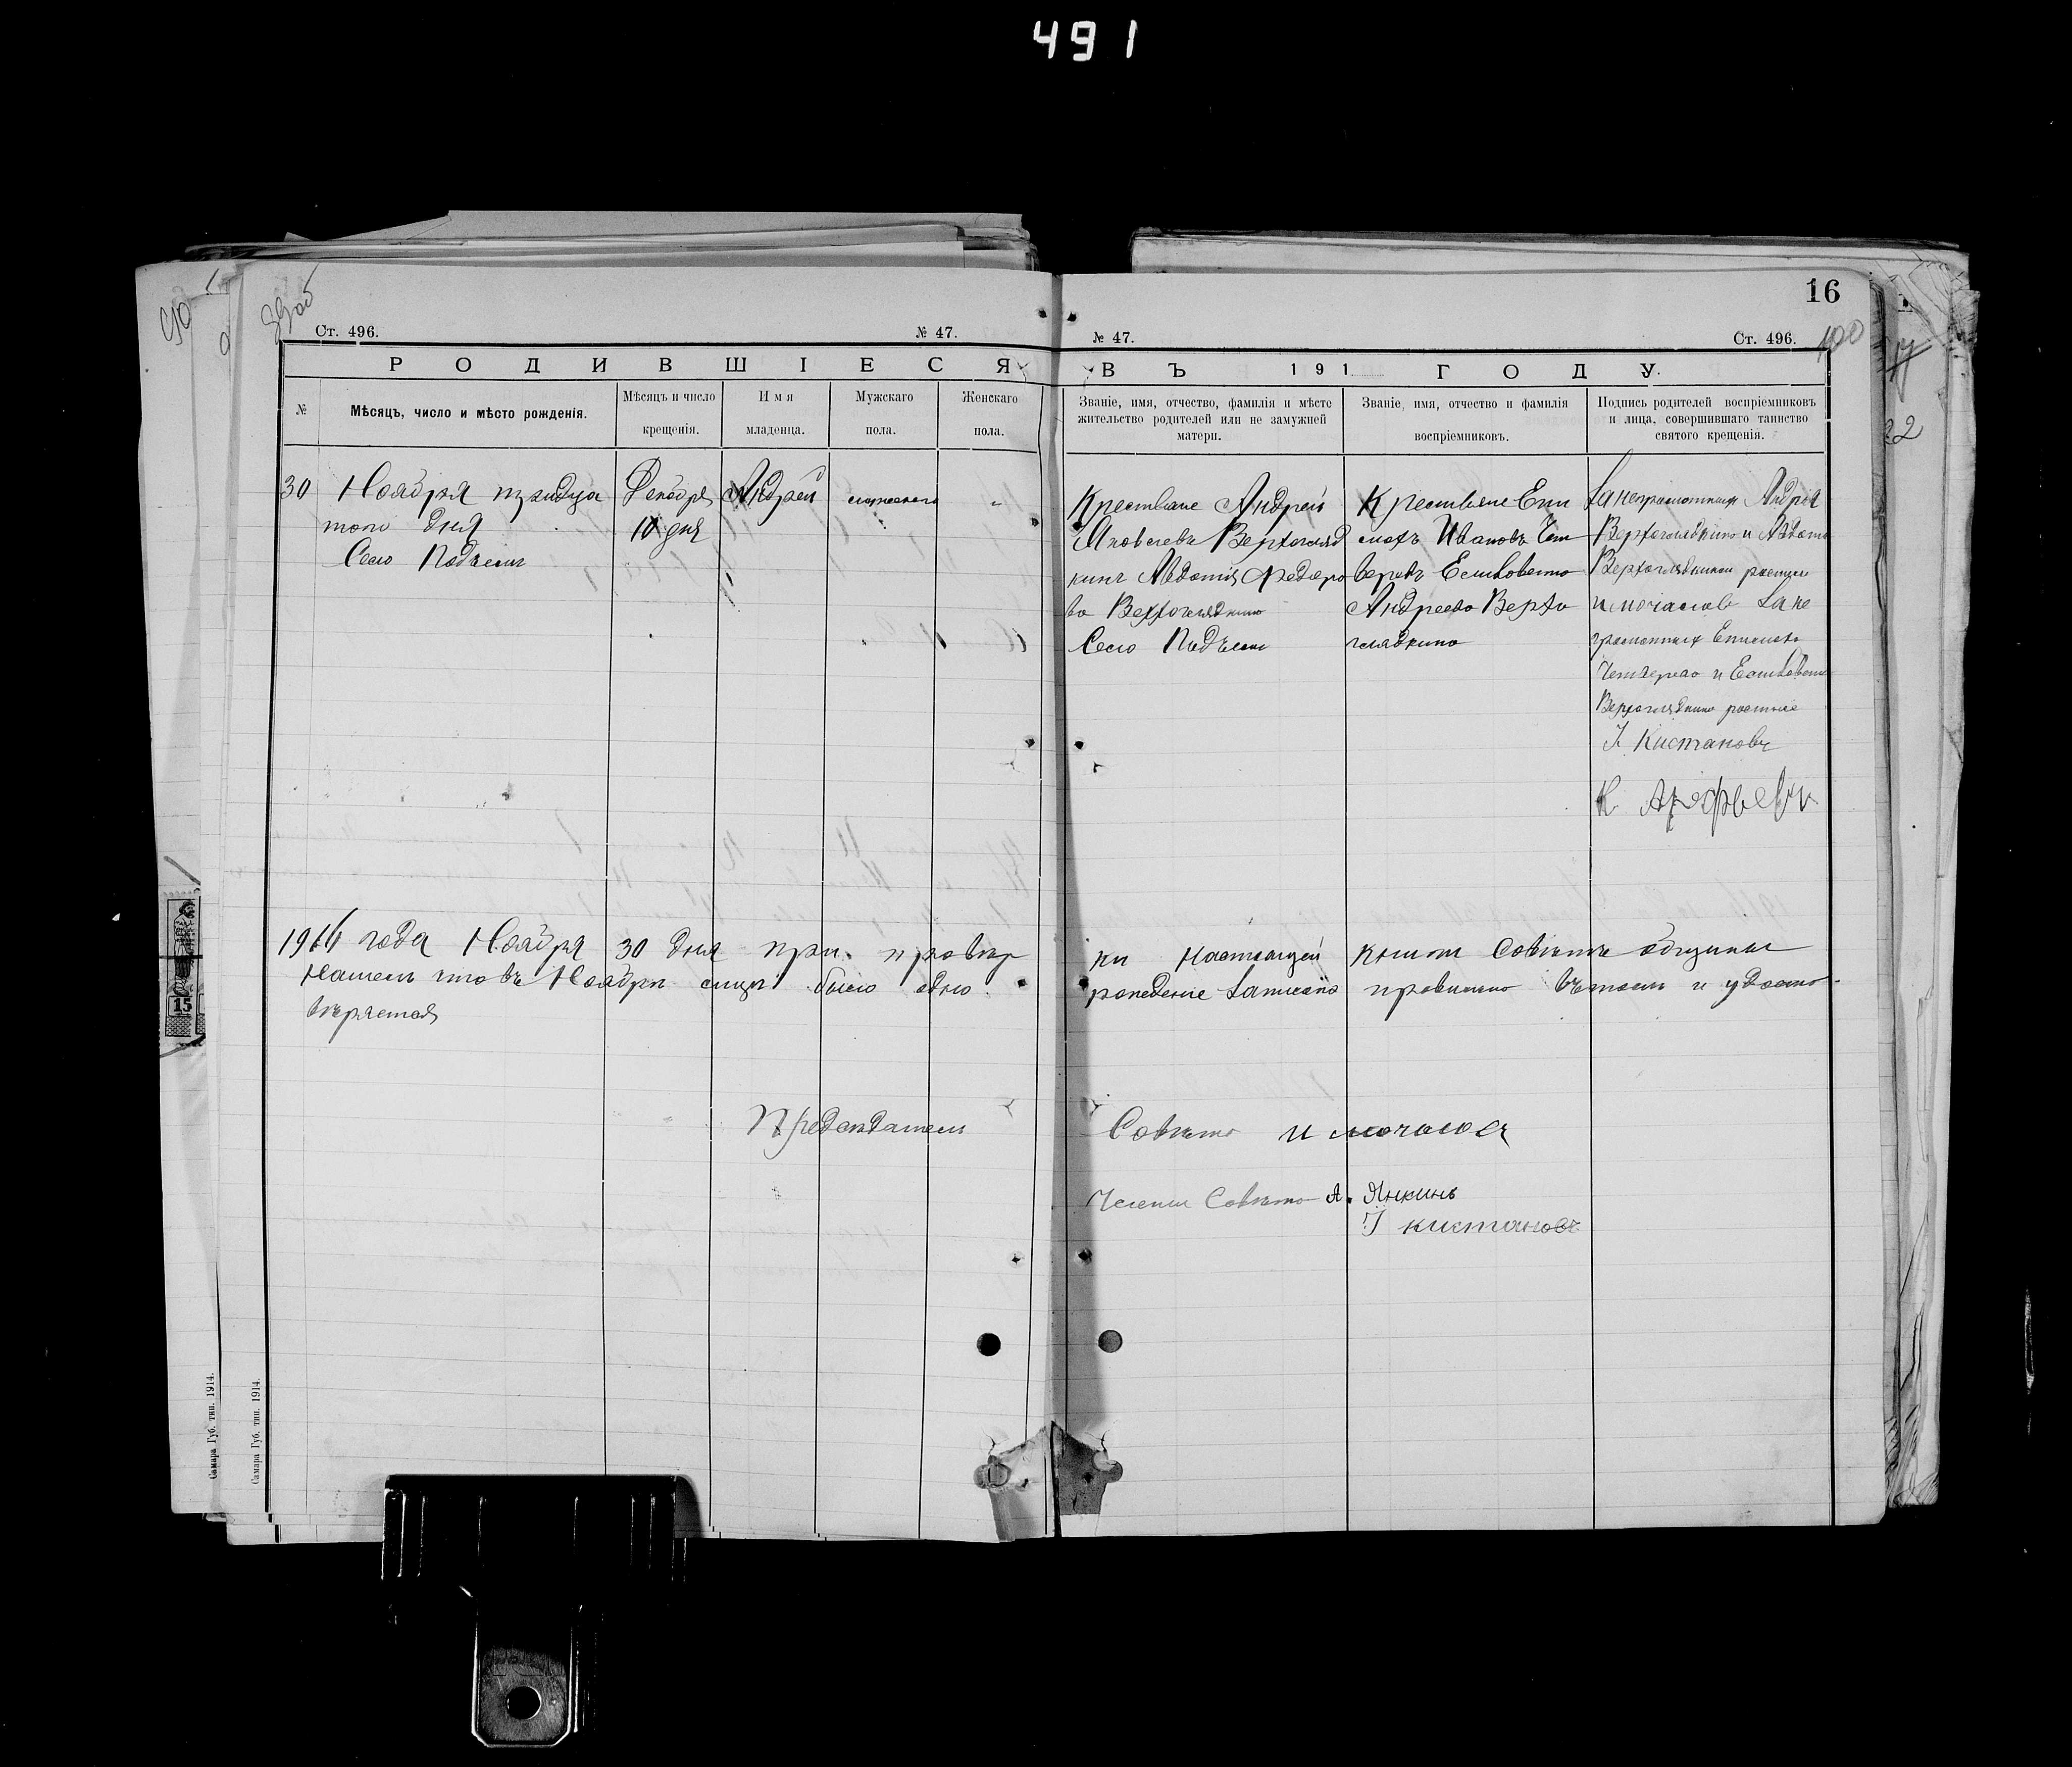 491
16
Ст. 496.
№ 47.
№ 47.
Ст. 496.
100
РОДИВШІЕСЯ
ВЪ 191 ГОДУ.
№
Мѣсяцъ, число и мѣсто рожденія.
Мѣсяцъ и число крещенія.
Имя младенца.
Мужскаго пола.
Женскаго пола.
Званіе, имя, отчество, фамилія и мѣсто
жительство родителей или не замужней
матери.
Званіе, имя, отчество и фамилія
воспріемниковъ.
Подпись родителей воспріемниковъ
и лица, совершившаго таинство
святого крещенія.
30
Ноября тридца
того дня
Село Подъемъ
Декабря
10 дня
Андрей
мужскаго
Крестьяне Андрей
Яковлевъ Верхогляд
кинъ Авдотія Федоро
ва Верхоглядкина
Село Подъемъ
Крестьяне Епи
махъ Ивановъ Чет
веровъ Елизовета
Андреева Верхо
глядкина
За неграмотныхъ Андрея
Верхоглядкина и Авдоти
Верхоглядкиной
За не
грамотныхъ Епимаха
и Елизовети
Верхоглядкина
І. Кистановъ
К Арефьевъ
1916 года Ноября 30 дня при провѣр
ки настоящей книги Совѣтъ общины
нашелъ што въ Ноябри мицѣ было одно
рождение записано правильно въ томъ и удосто-
вѣряется
Предсѣдатель
Совѣта
Члены Совѣта А. Янкинъ
І кистановъ
15
Самара Губ. тип. 1914.
Самара Губ. тип. 1914.